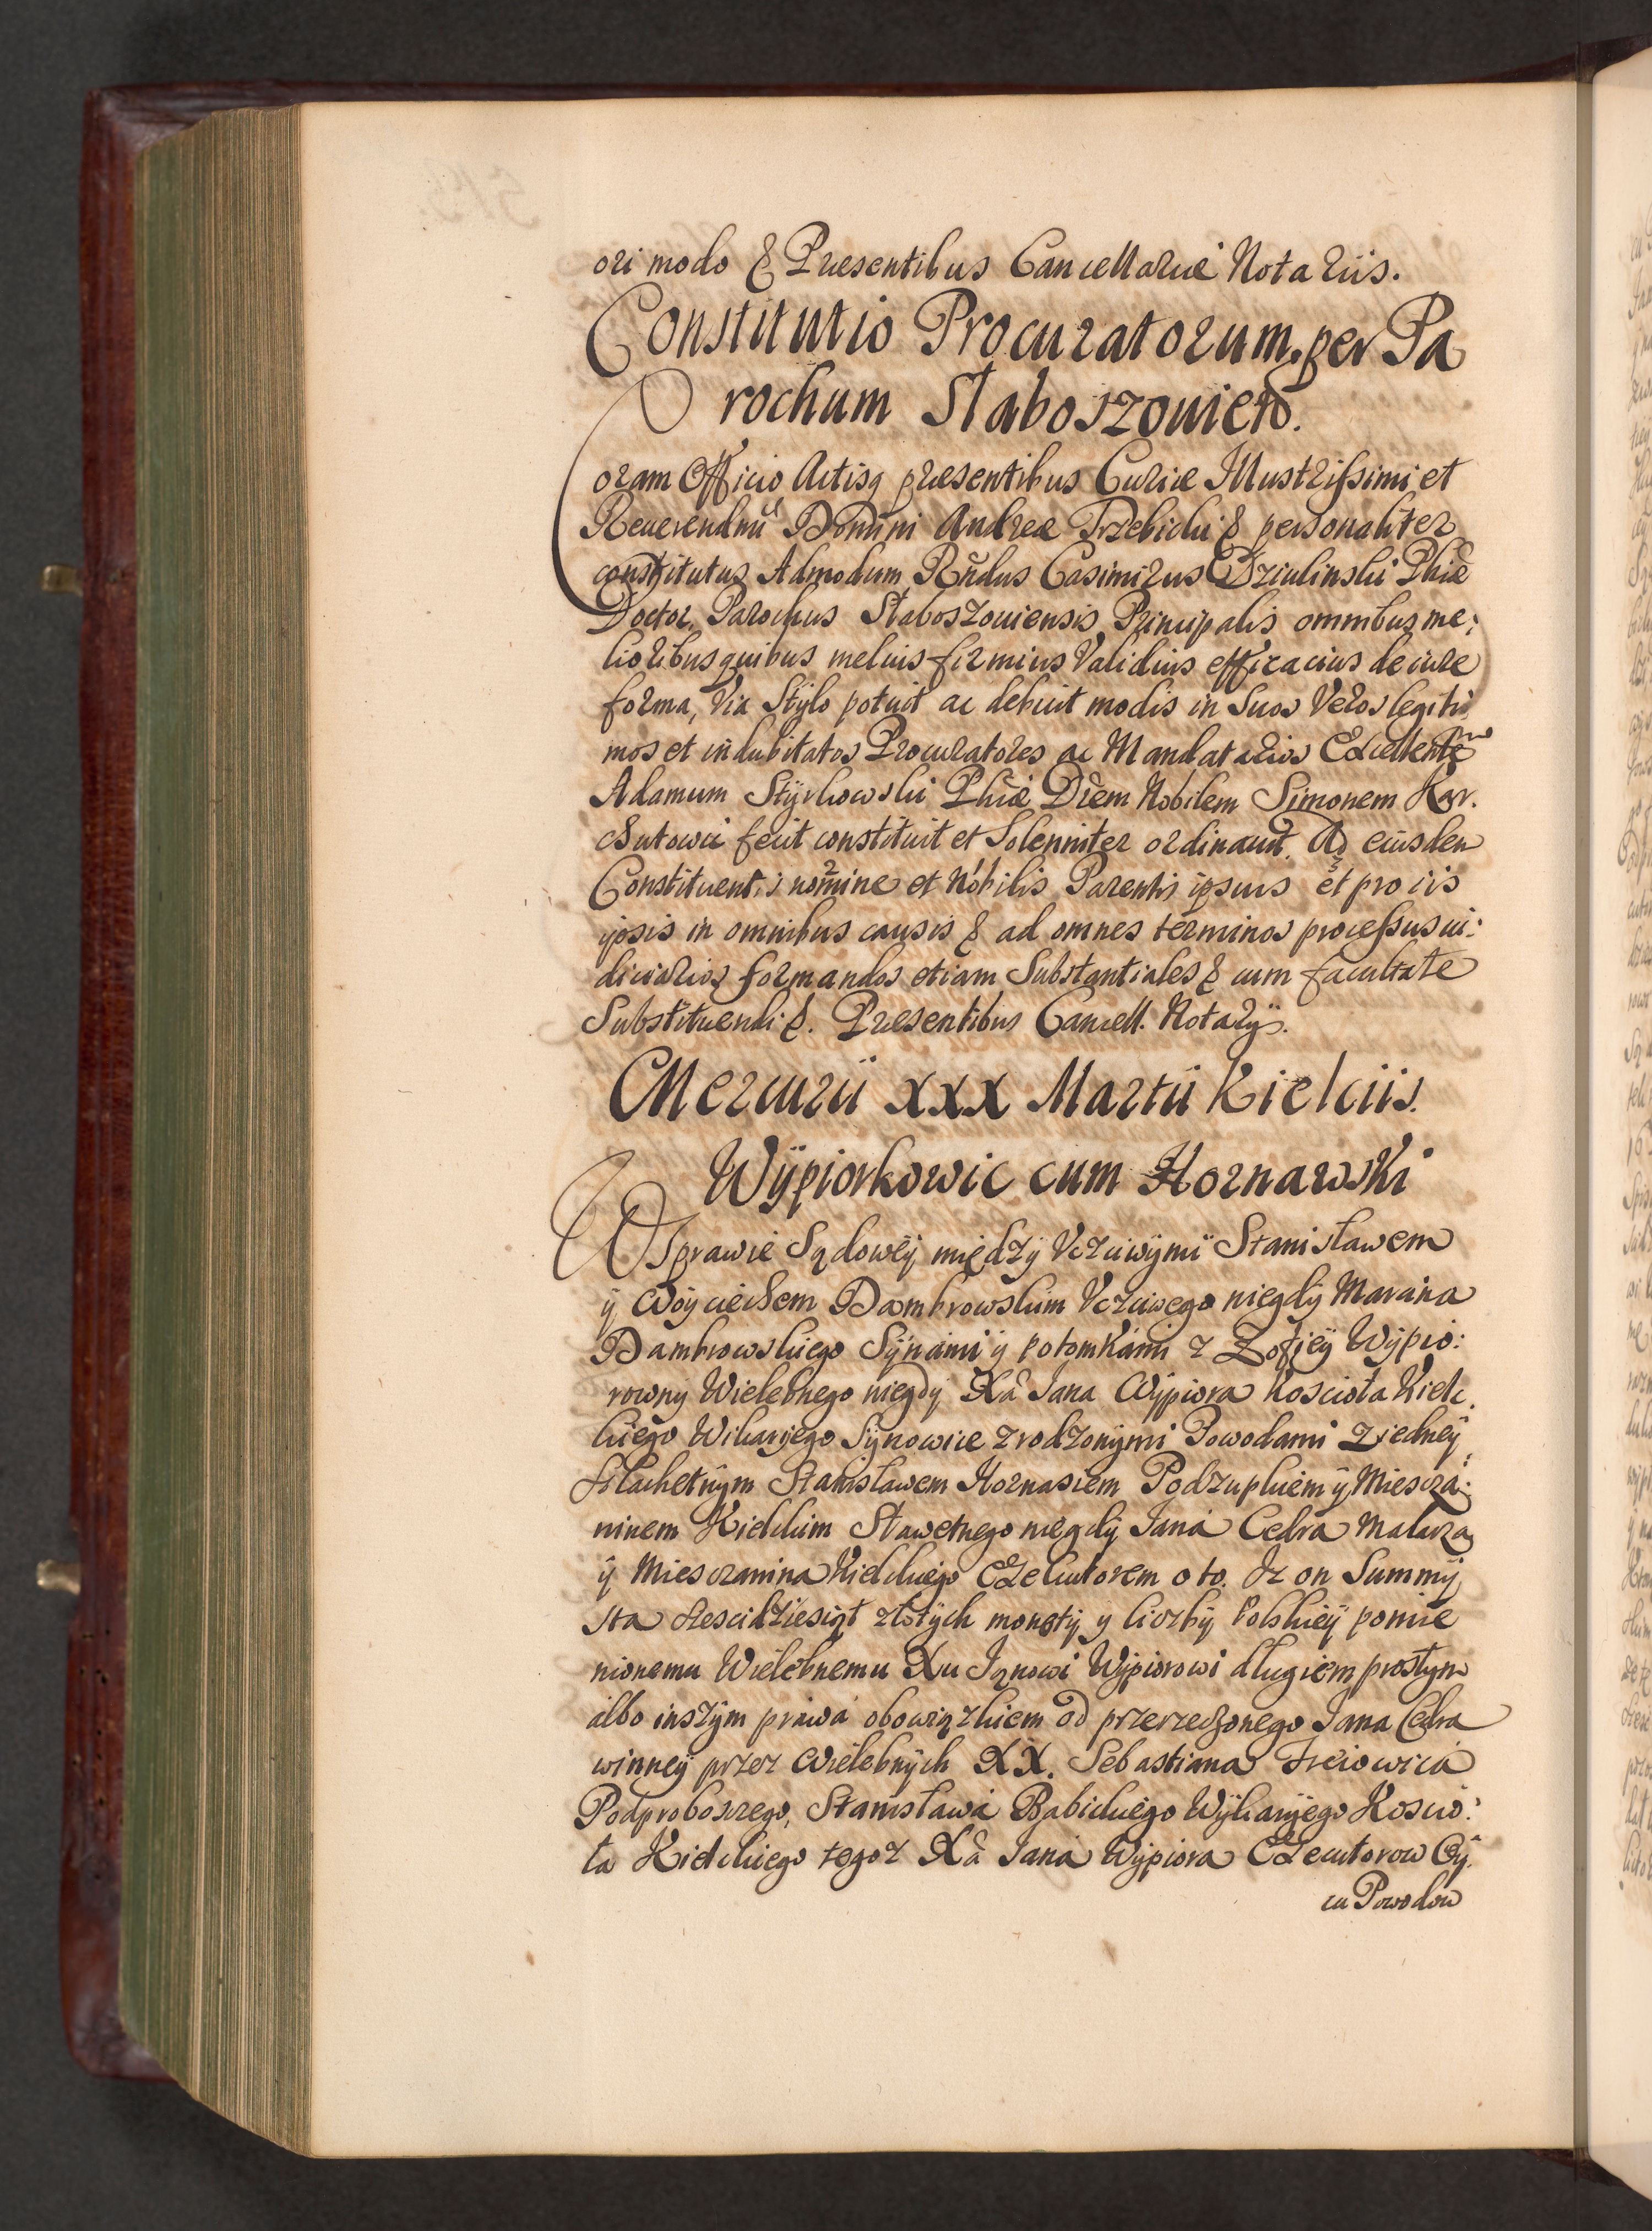 ori modo & Præsentibus Cancellariæ Notariis.
Constitutio Procuratorum per Pa
rochum Slaboszouien.
Coram Officio Actisq præsentibus Curiæ Illustrissimi et
Reuerendmi Domini Andreæ Trzebicki & personaliter
constitutus Admodum Rndus Casimirus Dziulinski Phiæ
Doctor, Parochus Slaboszouiensis Principalis omnibus me:
lioribus quibus melius firmius Validius efficacius de iure
forma, Via Stylo potuit ac debuit modis in Suos Veros legiti
mos et indubitatos Procuratores ac Mandatarios Excellentem
Adamum Styrkowski Phiæ Drem Nobilem Simonem Kar.
Sutowic fecit constituit et Solenniter ordinauit. Ad eiusdem
Constituentis nomine et Nobilis Parentis ipsius et pro iis
ipsis in omnibus causis & ad omnes terminos processus iu:
diciarios formandos etiam Substantiales & cum facultate
Substituendi &. Præsentibus Cancell. Notarÿs.
Mercurii XXX Martii Kielciis.
Wÿpiorkowic cum Hornawski
W Sprawie Sądoweÿ międzÿ Vczciwÿmi Stanisławem
ÿ Woÿciechem Dambrowskim Vczciwego niegdÿ Marcina
Dambrowskiego Sÿnami ÿ potomkami z Zofieÿ Wÿpio:
rowny Wielebnego niegdÿ Xa Jana Wÿpiora Kosciola Kielc
kiego Wikaryego Sÿnowice zrodzonÿmi Powodami z iedneÿ
Slachetnÿm Stanisławem Hornasiem Podzupkiem ÿ Miescza:
ninem Kielckim Sławetnego niegdÿ Jana Cedra Malarza
ÿ Miesczanina Kielckiego Exekutorem o to. Jz on Summÿ
sta szescidziesiąt złotÿch monetÿ y liczbÿ Polskieÿ pomie
nionemu Wielebnemu Xu Janowi Wÿpiorowi długiem prostym
albo inszÿm prawa obowiązkiem od przerzeczonego Jana Cedra
winneÿ przez Wielebnÿch XX. Sebastiana
Podproboszczego, Stanisława Babickiego Wÿkarÿego Koscio:
ła Kielckiego tegoz Xa Jana Wÿpiora Exekutorow Oÿ
cu Powodow